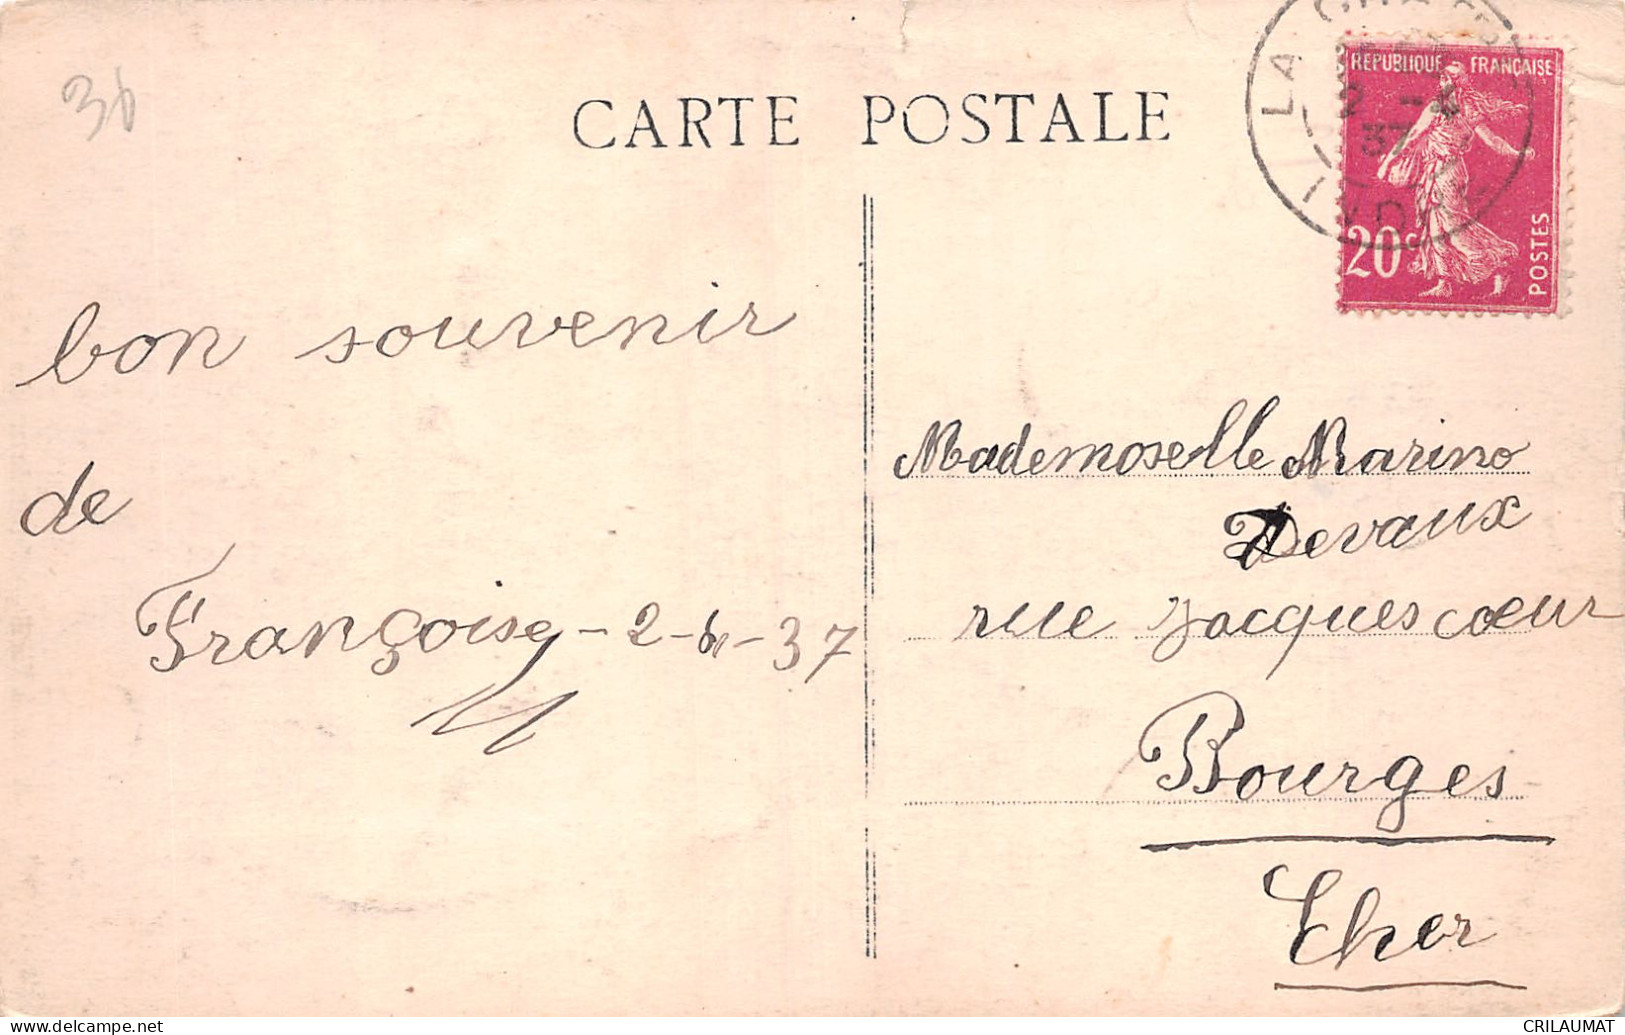 36
CARTE POSTALE
LA
REPUBLIQUE FRANÇAISE
2 -
37
INDRE
20c
POSTES
bon souvenir
de
Françoise - 2-6-37
Mademoiselle Marino
Devaux
rue Jacques cœur
Bourges
Cher
CRILAUMAT